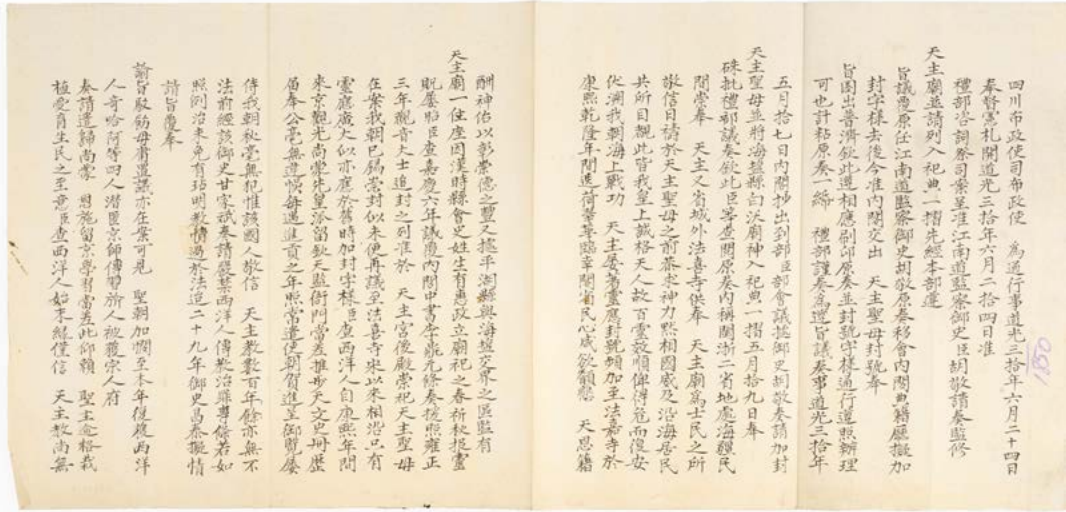 四川布政使司布政使　為通行事道光三拾年六月二十四日
奉督憲札開道光三拾年六月二拾四日准
禮部咨詞祭司案呈准江南道監察御史臣胡敬請奏監修
天主廟並請列入祀典一摺先經本部遵
旨議覆原任江南道監察御史胡敬原奏移會內閣典籍廳擬加
封字樣去後今准內閣交出　天主聖母封號奉
旨圈出普濟欽此遵相應刷印原奏並封號字樣通行遵照辦理
可也計粘原奏一紙　禮部謹奏為遵旨議奏事道光三拾年
五月拾七日內閣抄出到部臣部會議據御史胡敬奏請加封
天主聖母並將海塩縣白沃廟神入祀典一摺五月拾九日奉
硃批禮部議奏欽此臣等查閱原奏內稱閩浙二省地處海疆民
間崇奉　天主人省城外法喜寺供奉　天主廟為士民之所
敬信日禱於天主聖母之前恭求神力默相國威及沿海居民
共所目覩此皆我皇上誠格天人故百靈效順俾傳危而復安
伏溯我朝海上戰功　天主屢著靈應封號頻加至法喜寺於
康熙乾隆年間迭荷華臨幸閩省民心咸欲籲懇　天恩藉
酬神佑以彰崇德之豐又據平湖縣與海塩交界之區監有
天主廟一位座因漢時縣會史姓生有惠政立廟祀之春祈秋報靈
貺屢昭臣查嘉慶六年議覆內閣中書李兆元條奏援照雍正
三年觀音大士追封之列准於　天主宮後殿崇祀天主聖母
在案我朝已錫崇封似未便再議至法喜寺宋以來相沿只有
靈應廣大似亦應於舊時加封字樣臣查西洋人自康熙年間
來京觀光尚蒙先皇派留欽天監衙門當差推步天文史冊歷
屆奉公毫無違悞每遇進貢之年照常遣使朝賀進呈御覽屢
侍我朝秋毫無犯惟該國人敬信　天主教數百年餘亦無不
法前經該御史甘字祇奏請嚴禁西洋人傳教治罪專條若如
照例治未免有玷明教情過於法道二十九年御史昌泰擬情
請旨覆奉
諭旨馭勛毋庸置議亦在案可見　聖朝加憫至本年復獲西洋
人奇哈阿等四人潛匿京師傳習所人被獲宗人府
奏請遣歸尚蒙　恩施留京學習當差此仰賴　聖主愈格栽
植愛育生民之至意臣查西洋人始末緣僅信　天主教尚無
1850